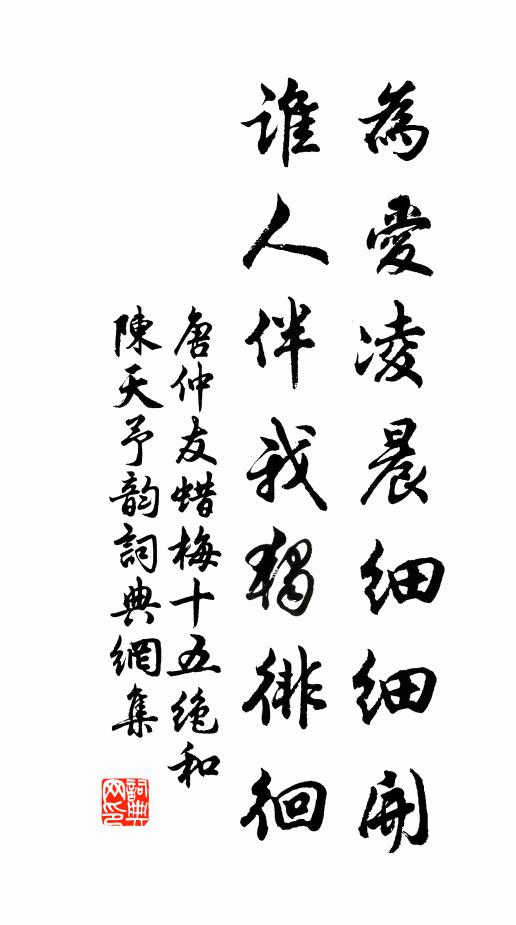 為愛凌晨細細開
誰人伴我獨徘徊
唐仲友蜡梅十五絕和
陳天予韵詞典網集
詞典网印